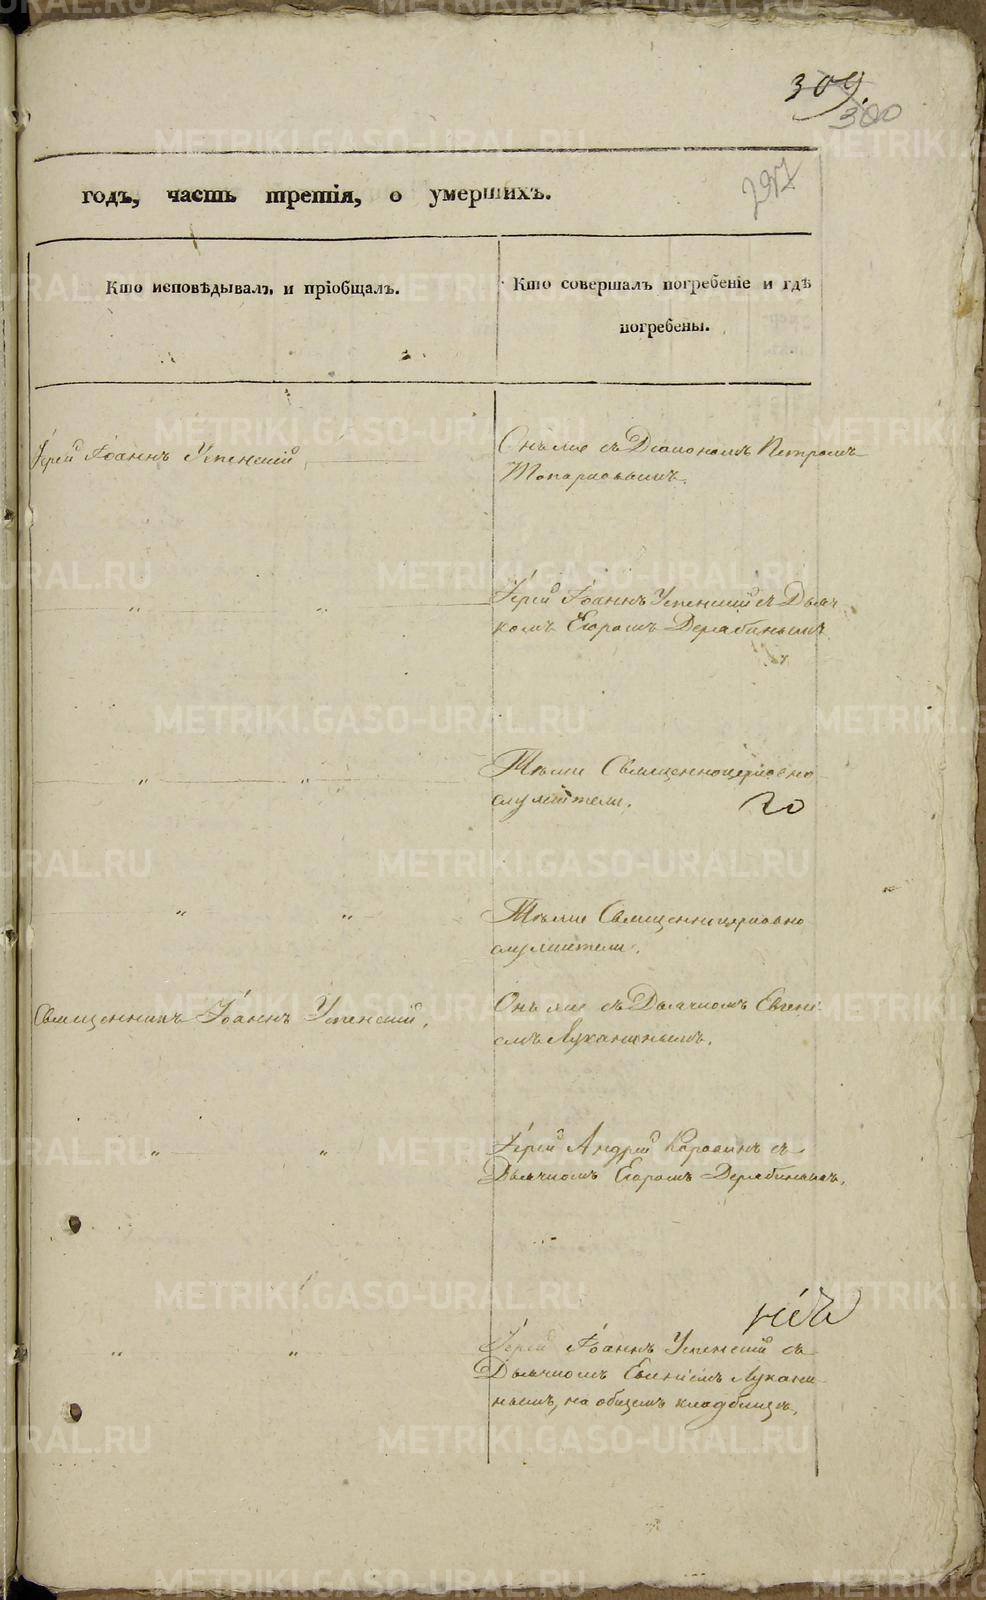 309.
300
297
годъ, часть третія, о умершихъ.
Кто исповѣдывалъ и пріобщалъ.
Кто совершалъ погребеніе и гдѣ
погребены.
Іерей Іоаннъ Успенскій
Онъ же съ Діакономъ Петромъ
Топорковымъ.
" "
Іерей Іоаннъ Успенскій съ Дьяч
комъ Егоромъ Дерябинымъ
" "
Тѣже Священноцерковно
служители.
" "
Тѣже Священноцерковно
служители.
Священникъ Іоаннъ Успенскій,
Онъ же съ Дьячкомъ Евгені
емъ Луканинымъ.
" "
Іерей Андрей Коровинъ съ
Дьячкомъ Егоромъ Дерябинымъ.
" "
Іерей Іоаннъ Успенскій съ
Дьячкомъ Евгеніемъ Лукани
нымъ, на общемъ кладбищѣ.
METRIKI.GASO-URAL.RU